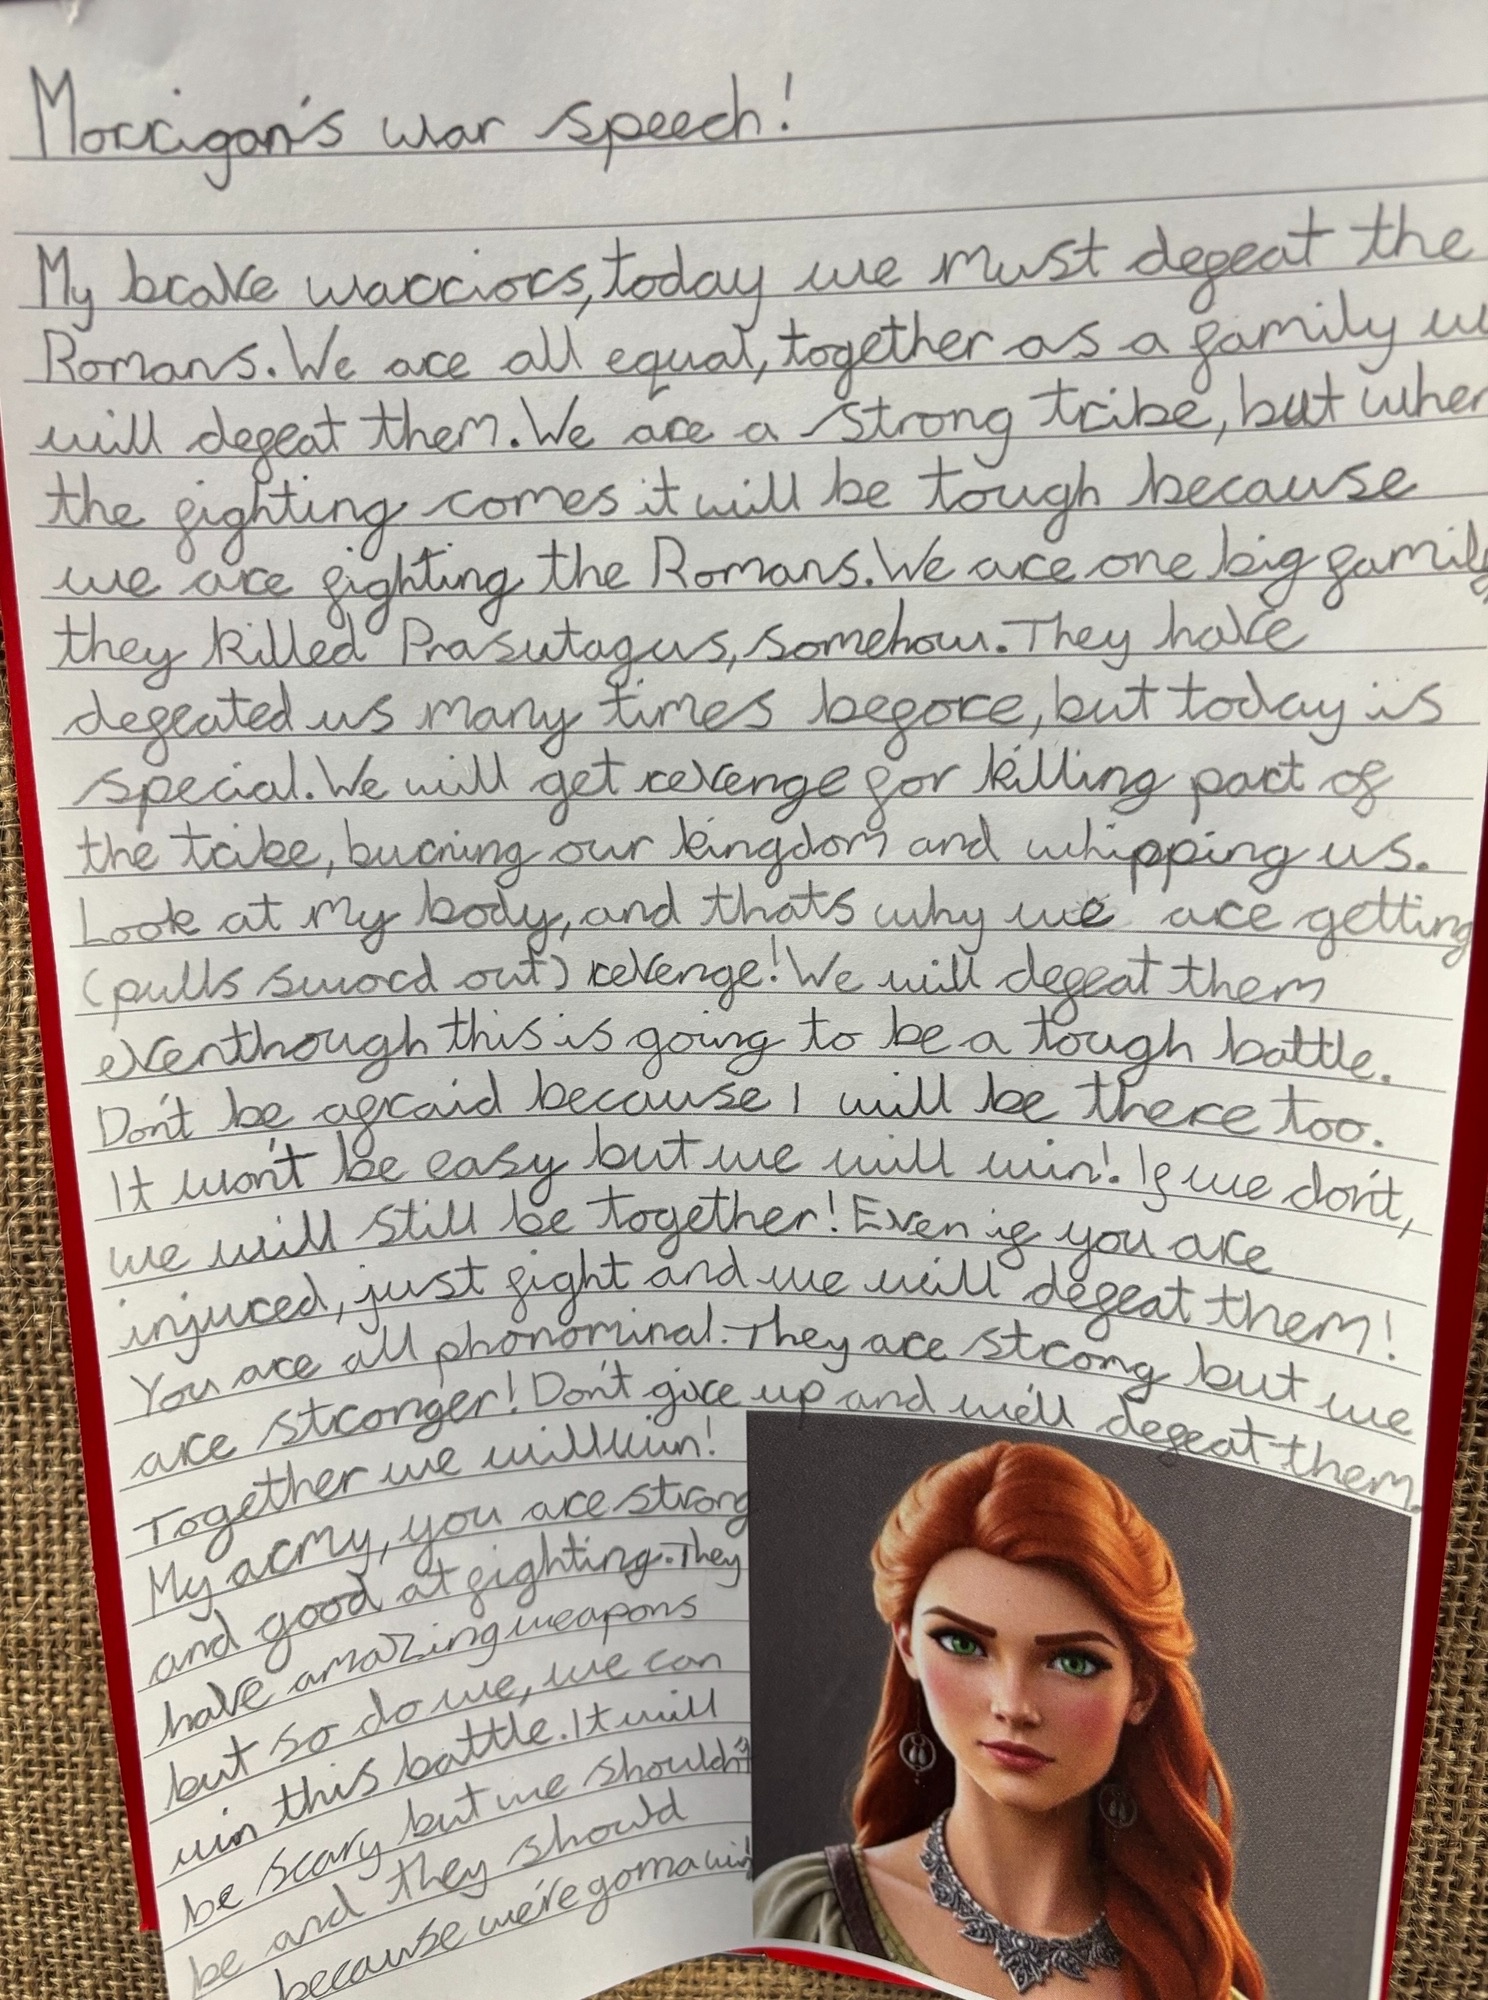 Morrigan's war speech!
My brave warriors, today we must defeat the
Romans. We are all equal, together as a family
will defeat them. We are a strong tribe, but when
the fighting comes it will be tough because
we are fighting the Romans. We are one big family
they killed Prasutagus, somehow. They have
defeated us many times before, but today is
special. We will get revenge for killing part of
the tribe, burning our kingdom and whipping us.
Look at my body, and thats why we are getting
(pulls sword out) revenge! We will defeat them
eventhough this is going to be a tough battle.
Don't be afraid because I will be there too.
It won't be easy but we will win! If we don't,
we will still be together! Even if you are
injured, just fight and we will defeat them!
You are all phonominal. They are strong but we
are stronger! Don't give up and we'll defeat them.
Together we will win!
My army, you are strong
and good at fighting. They
have amazing weapons
but so do we, we can
win this battle. It will
be scary but we shouldn't
be and they should
because we're gonna win!